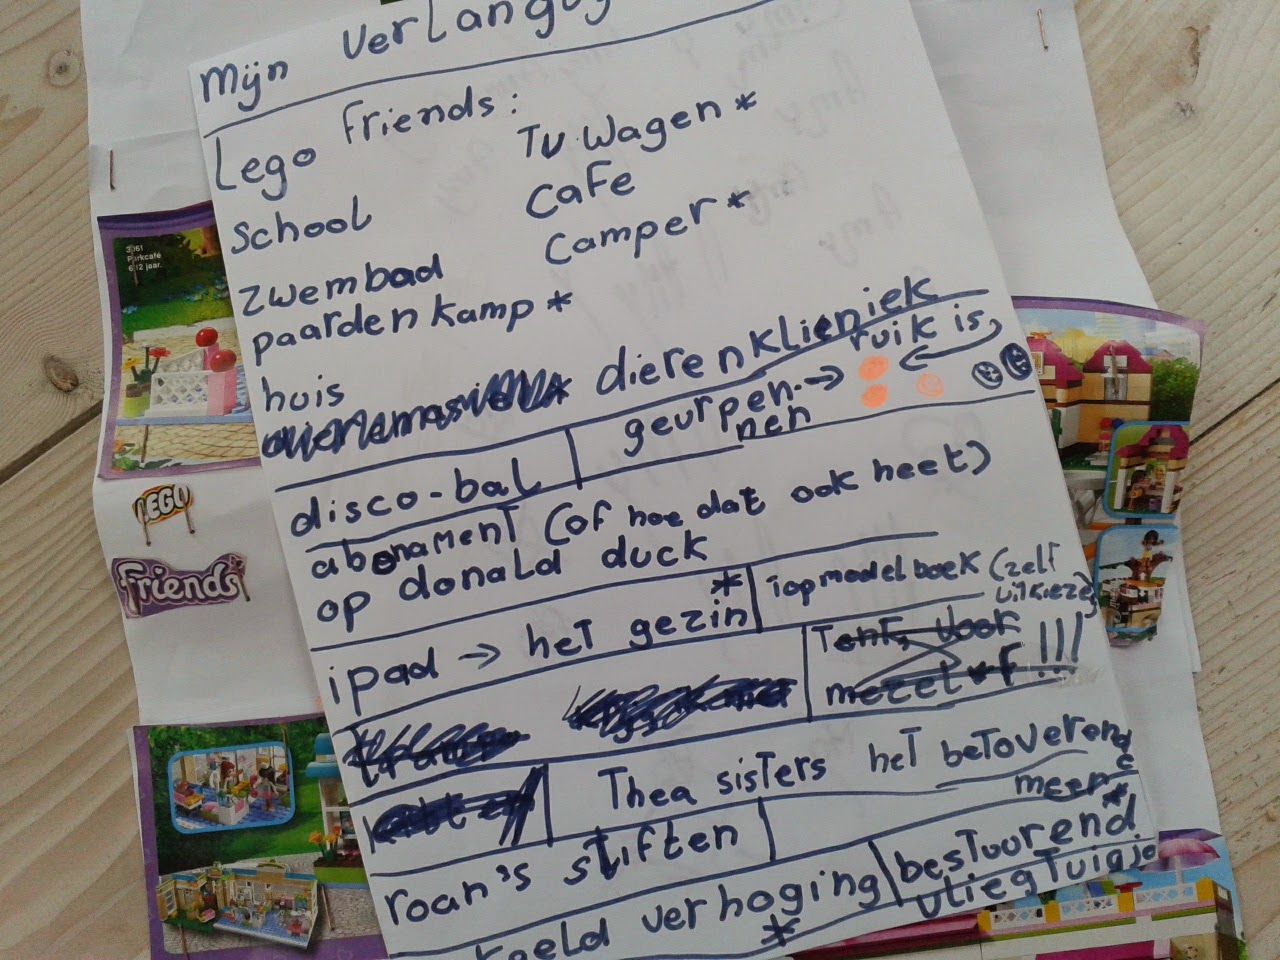 Mijn verlang
Lego Friends:
TV. Wagen *
school
cafe
zwembad
camper *
paardenkamp *
huis
dierenklieniek
geurpen-
nen
ruik is
disco-bal
abonament (of hoe dat ook heet)
op donald duck
ipad → het gezin *
topmodel boek (zelf
uitkiezen
Tent, voor
mezelf !!!
Thea sisters het betoverend
meer *
roan's stiften
geld verhoging *
bestuurend
vliegtuigje
3061
Parkcafé
6-12 jaar.
LEGO
Friends